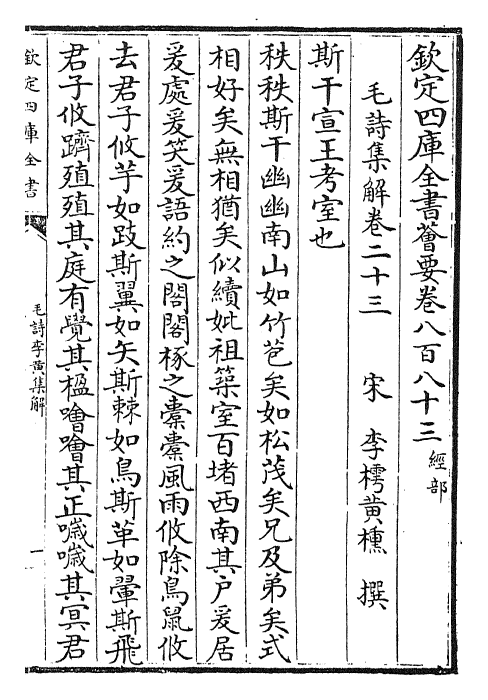 欽定四庫全書薈要卷八百八十三 經部
毛詩集解卷二十三 宋 李樗黃櫄 撰
斯干宣王考室也
秩秩斯干幽幽南山如竹苞矣如松茂矣兄及弟矣式
相好矣無相猶矣似續妣祖築室百堵西南其戶爰居
爰處爰笑爰語約之閣閣椓之橐橐風雨攸除鳥鼠攸
去君子攸芋如跂斯翼如矢斯棘如鳥斯革如翬斯飛
君子攸躋殖殖其庭有覺其楹噲噲其正噦噦其冥君
欽定四庫全書
毛詩李黃集解
一